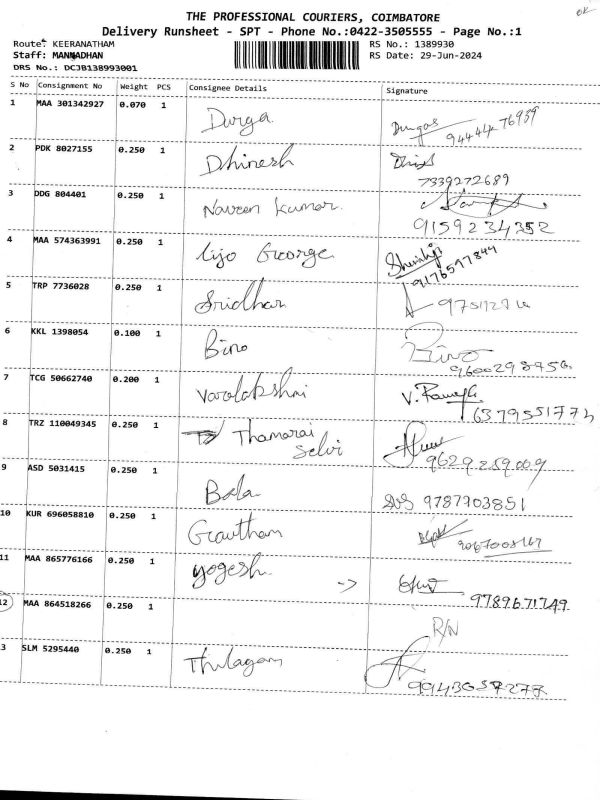 THE PROFESSIONAL COURIERS, COIMBATORE
OK
Delivery Runsheet - SPT - Phone No.:0422-3505555 - Page No.:1
Route: KEERANATHAM RS No.: 1389930
Staff: MANMADHAN RS Date: 29-Jun-2024
DRS No.: DCJB138993001
S No Consignment No Weight PCS Consignee Details Signature
1 MAA 301342927 0.070 1 Durga Durgas
94444 76939
2 PDK 8027155 0.250 1 Dhinesh
7339272689
3 DDG 804401 0.250 1 Naveen Kumar.
9159234352
4 MAA 574363991 0.250 1 Lijo George
9176597844
5 TRP 7736028 0.250 1 Sridhar
6 KKL 1398054 0.100 1 Bino Bino
7 TCG 50662740 0.200 1 Varalakshmi V.
8 TRZ 110049345 0.250 1 Thamarai
Selvi
9629259009
9 ASD 5031415 0.250 1 Bala 9787703851
10 KUR 696058810 0.250 1 Gowtham
11 MAA 865776166 0.250 1 yogesh ->
9789671749
12 MAA 864518266 0.250 1 R/N
3 SLM 5295440 0.250 1 Thilagam
9943657277